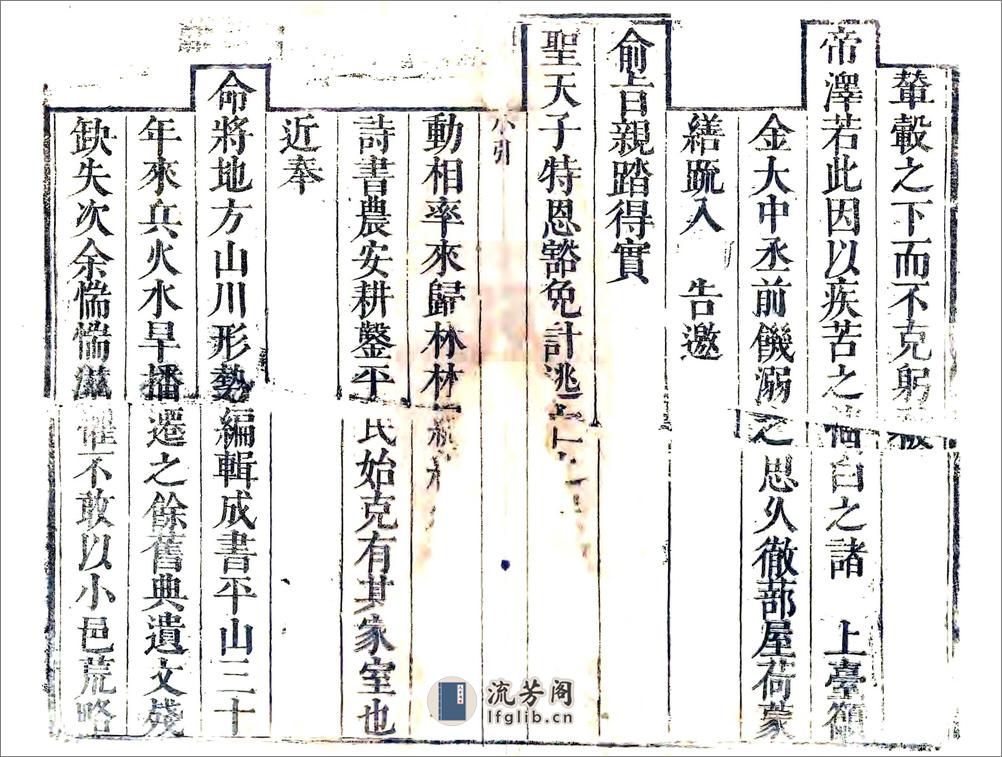 輦轂之下而不克躬
帝澤若此因以疾苦之情白之諸　上臺領
金大中丞前饑溺之思久徹蔀屋荷蒙
繕疏入　告邀
俞旨親踏得實
聖天子特恩豁免計逃
小引
動相率來歸林林
詩書農安耕鑿平民始克有其家室也
近奉
命將地方山川形勢編輯成書平山三十
年來兵火水旱播遷之餘舊典遺文殘
缺失次余惴惴滋懼不敢以小邑荒略
流芳阁
lfglib.cn